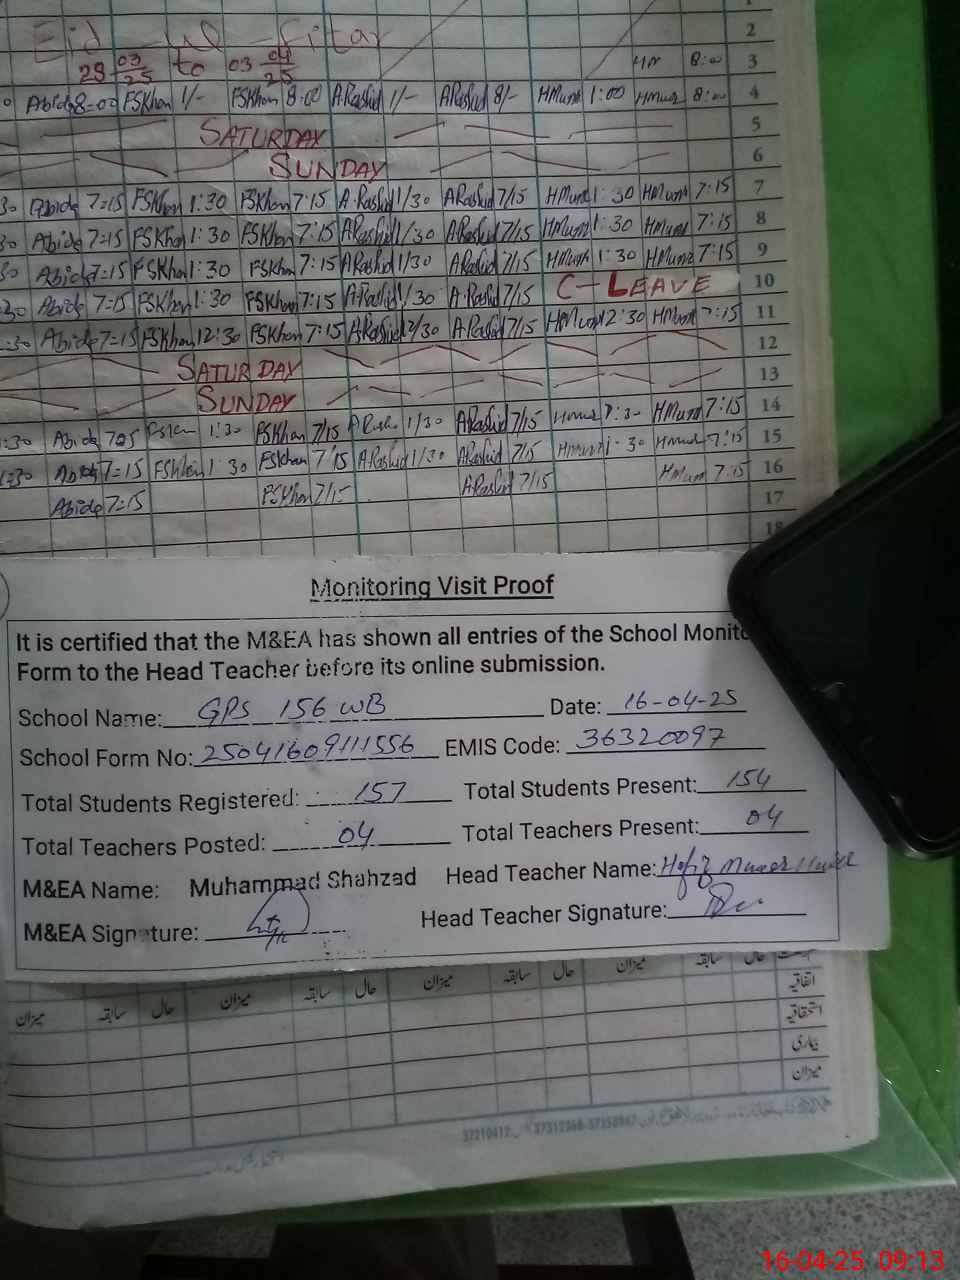 2
Eid-ul-fitar
29 03/25 to 03 04/25
HM 8:00 3
Abida 8=00 FSKhan 1/- FSKhan 8:00 A.Rashid 1/- ARashid 8/- HMunir 1:00 8:00 4
SATURDAY 5
SUNDAY 6
30 Abida 7=15 FSKhan 1:30 FSKhan 7:15 A.Rashid 1/30 ARashid 7/15 HMunir 1:30 HMunir 7:15 7
30 Abida 7=15 FSKhan 1:30 FSKhan 7:15 ARashid 1/30 ARashid 7/15 HMunir 1:30 HMunir 7:15 8
30 Abida 7=15 FSKhan 1:30 FSKhan 7:15 ARashid 1/30 ARashid 7/15 HMunir 1:30 HMunir 7:15 9
30 Abida 7=15 FSKhan 1:30 FSKhan 7:15 A.Rashid 1/30 A.Rashid 7/15 C-LEAVE 10
:30 Abida 7=15 FSKhan 12:30 FSKhan 7:15 A.Rashid 12/30 A.Rashid 7/15 HMunir 12:30 HMunir 7:15 11
SATURDAY 12
SUNDAY 13
1:30 Abida FSKhan 1:30 FSKhan 7/15 ARashid 1/30 ARashid 7/15 HMunir HMunir 7:15 14
1:30 Abida 7=15 FSKhan 1:30 FSKhan 7/15 ARashid 1/30 ARashid 7/15 HMunir 1:30 HMunir 7:15 15
Abida 7=15 FSKhan 7/15 ARashid 7/15 HMunir 7:15 16
17
18
Monitoring Visit Proof
It is certified that the M&EA has shown all entries of the School
Form to the Head Teacher before its online submission.
School Name: GPS 156 WB Date: 16-04-25
School Form No: 25041609111556 EMIS Code: 36320097
Total Students Registered: 157 Total Students Present: 154
Total Teachers Posted: 04 Total Teachers Present: 04
M&EA Name: Muhammad Shahzad Head Teacher Name: Hafiz
M&EA Signature: Head Teacher Signature:
میزان سابقہ حال میزان سابقہ حال میزان سابقہ حال میزان سابقہ حال
اتفاقیہ
استحقاقیہ
بیماری
میزان
16-04-25 09:13